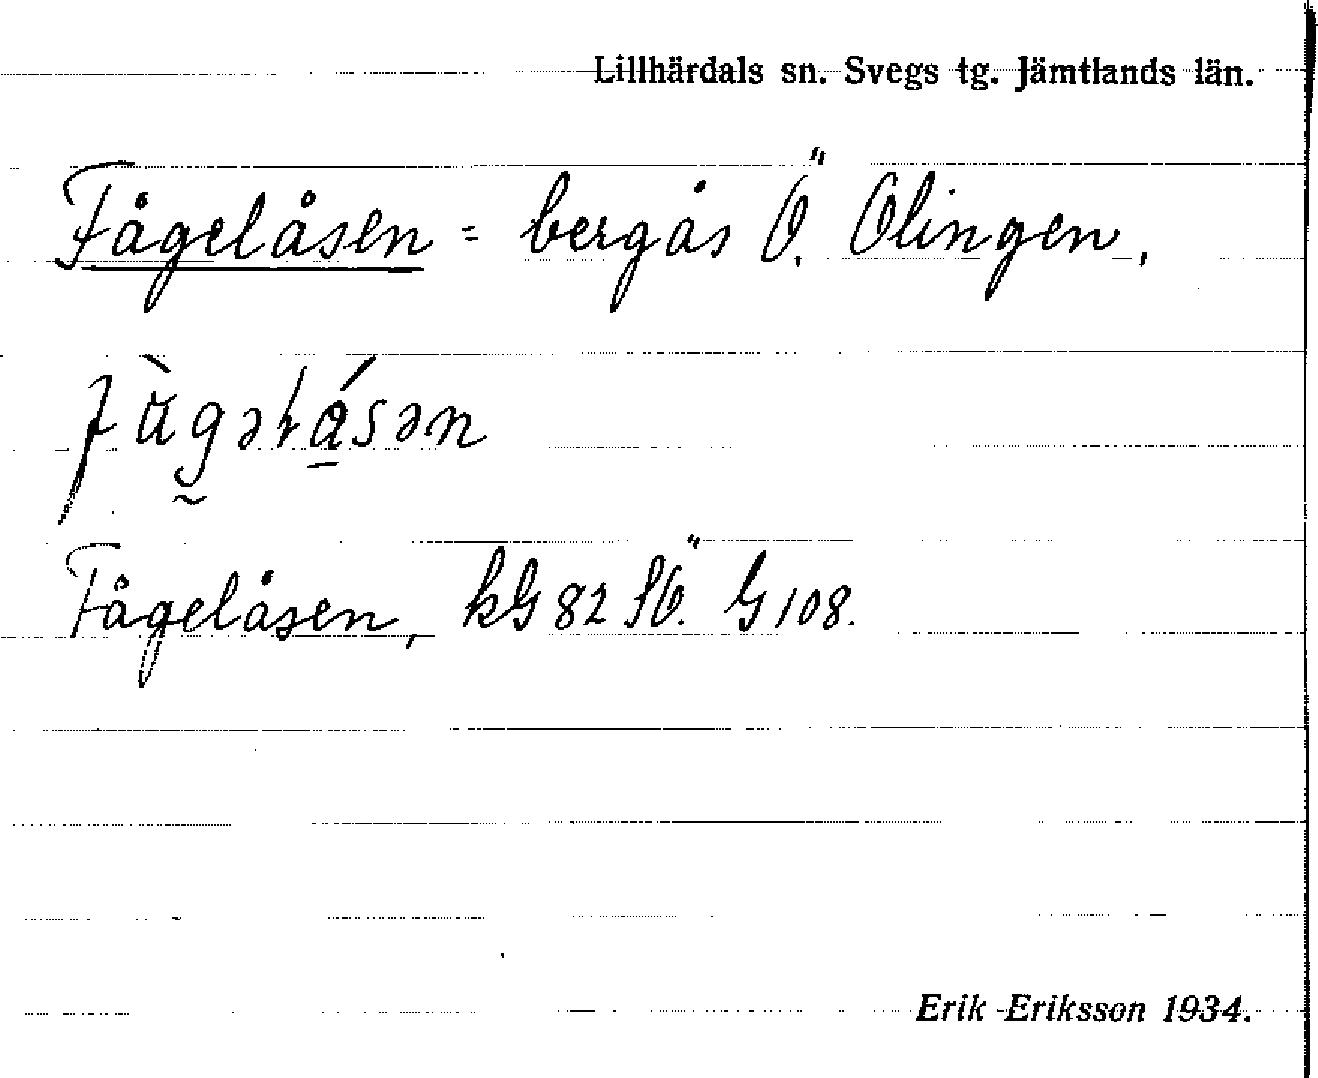 Lillhärdals sn. Svegs tg. Jämtlands län.
Fågelåsen = bergås Ö. Olingen.
Fågelåsen, kG 82 SÖ. G 108.
Erik Eriksson 1934.